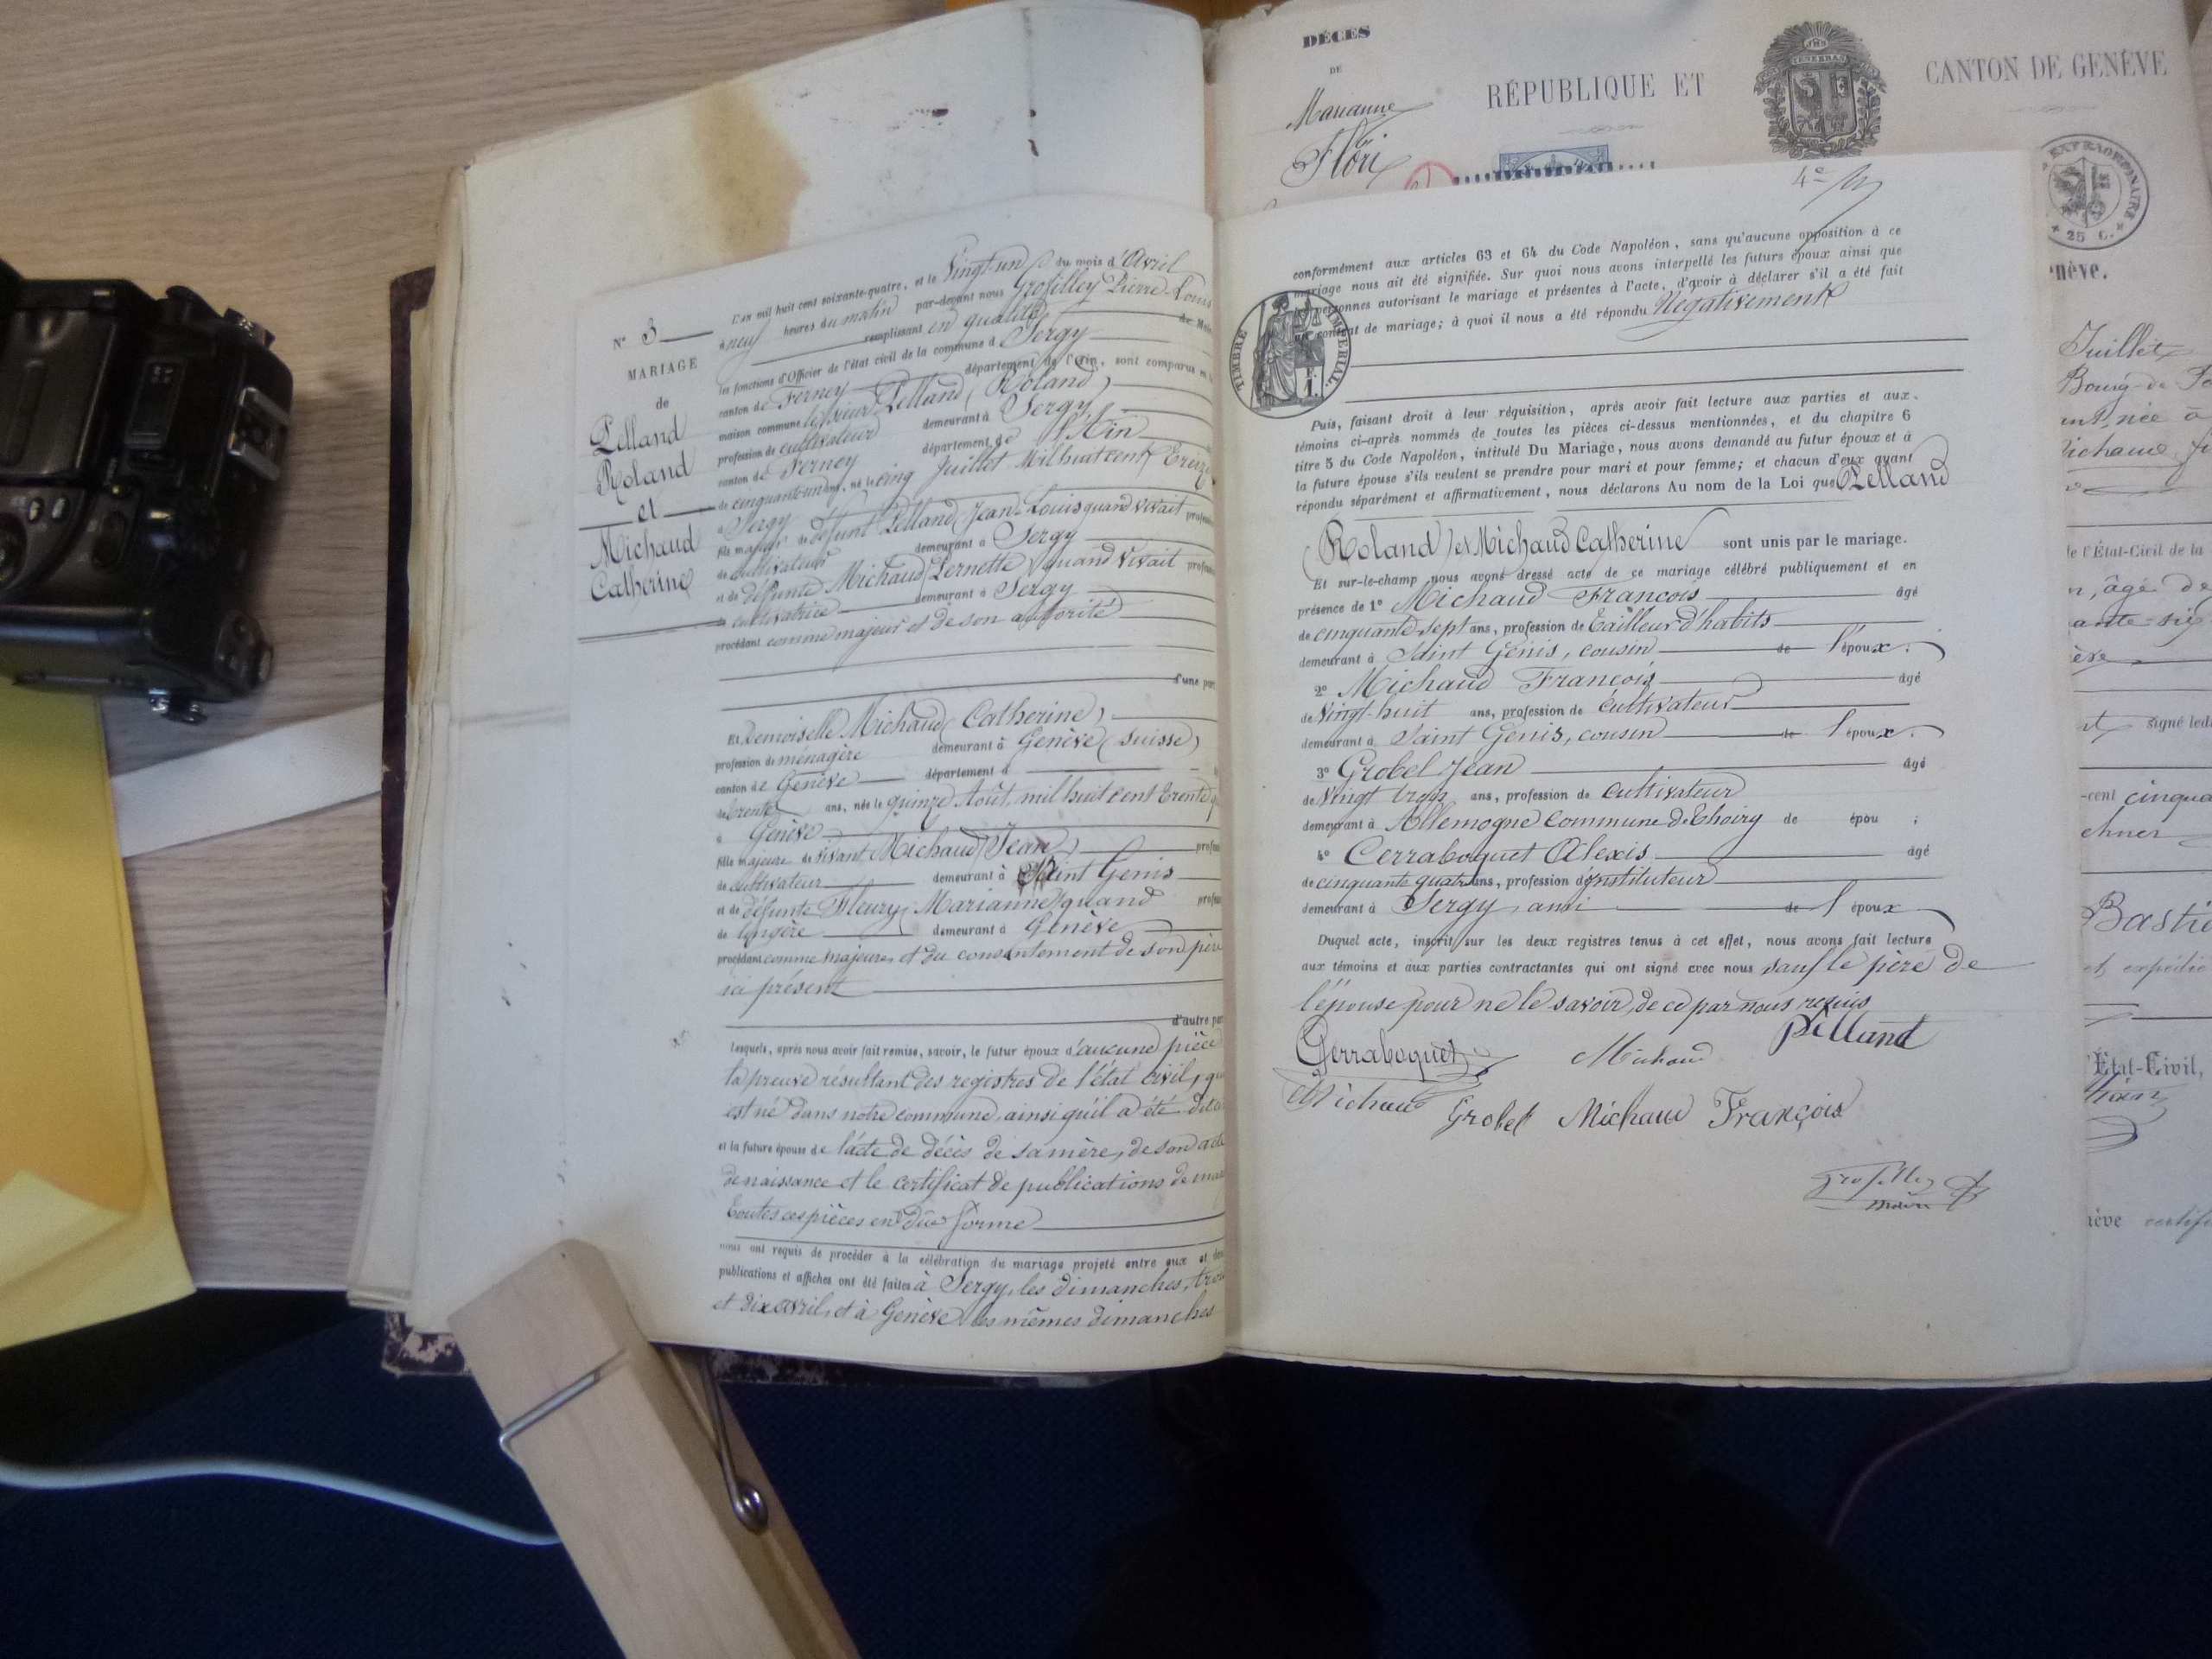 N° 3
MARIAGE
de
Pelland
Roland
et
Michaud
Catherine
L'an mil huit cent soixante-quatre, et le Vingt-un du mois d'Avril
à neuf heures du matin par-devant nous Grosfilley Pierre-Louis
remplissant en qualité de Maire
les fonctions d'Officier de l'état civil de la commune d Sergy
canton de Ferney département de l'Ain, sont comparus en la
maison commune le sieur Pelland (Roland)
profession de cultivateur demeurant à Sergy
canton de Ferney département de l'Ain
de cinquante un ans, né le cinq Juillet Mil huit cent Treize
à Sergy
fils majeur de défunt Pelland Jean-Louis quand vivait profession
de cultivateur demeurant à Sergy
et de défunte Michaud Pernette quand vivait profession
de cultivatrice demeurant à Sergy
procédant comme majeur et de son autorité
d'une part
Et Demoiselle Michaud (Catherine)
profession de ménagère demeurant à Genève (Suisse)
canton de Genève département d
de trente ans, née le quinze Août mil huit cent trente
à Genève
fille majeure de vivant Michaud (Jean)
de cultivateur demeurant à Saint Genis
et de défunte Fleury (Marianne) quand
de lingère demeurant à Genève
procédant comme majeure et du consentement de son père
ici présent
d'autre part
Lesquels, après nous avoir fait remise, savoir, le futur époux d'aucune pièce
la preuve résultant des registres de l'état civil, qu
est né dans notre commune, ainsi qu'il a été dit
et la future épouse de l'acte de décès de sa mère, de son acte
de naissance et le certificat de publications de
toutes ces pièces en dûe forme
nous ont requis de procéder à la célébration du mariage projeté entre eux et dont
publications et affiches ont été faites à Sergy, les dimanches, trois
et dix avril, et à Genève les mêmes dimanches
4e
conformément aux articles 63 et 64 du Code Napoléon, sans qu'aucune opposition à ce
mariage nous ait été signifiée. Sur quoi nous avons interpellé les futurs époux ainsi que
les personnes autorisant le mariage et présentes à l'acte, d'avoir à déclarer s'il a été fait
un contrat de mariage; à quoi il nous a été répondu Négativement
TIMBRE IMPÉRIAL.
Puis, faisant droit à leur réquisition, après avoir fait lecture aux parties et aux
témoins ci-après nommés de toutes les pièces ci-dessus mentionnées, et du chapitre 6
titre 5 du Code Napoléon, intitulé Du Mariage, nous avons demandé au futur époux et à
la future épouse s'ils veulent se prendre pour mari et pour femme; et chacun d'eux ayant
répondu séparément et affirmativement, nous déclarons Au nom de la Loi que Pelland
(Roland) et Michaud Catherine sont unis par le mariage.
Et sur-le-champ nous avons dressé acte de ce mariage célébré publiquement et en
présence de 1° Michaud François âgé
de cinquante-sept ans, profession de Tailleur d'habits
demeurant à Saint Genis, cousin de l'époux.
2° Michaud François âgé
de Vingt-huit ans, profession de cultivateur
demeurant à Saint Genis, cousin de l'époux.
3° Grobel Jean âgé
de Vingt trois ans, profession de cultivateur
demeurant à Allemogne commune de Thoiry de épou ;
4° Cerraboquet Alexis âgé
de cinquante quatre ans, profession d'instituteur
demeurant à Sergy, ami de l'époux
Duquel acte, inscrit sur les deux registres tenus à cet effet, nous avons fait lecture
aux témoins et aux parties contractantes qui ont signé avec nous sauf le père de
l'épouse pour ne le savoir, de ce par nous requis
Cerraboquet Michaud Pelland
Michaud Grobel Michaud François
Grosfilley
maire
DÉCES
DE
Marianne
Flori
RÉPUBLIQUE ET CANTON DE GENÈVE
25 C.
nève.
Juillet
Bourg-de
née à
Michaud
le l'État-Civil de la
n, âgé de
ante-six
signé led
-cent cinqua
Bastic
et expédié
État-Civil,
nève certifi